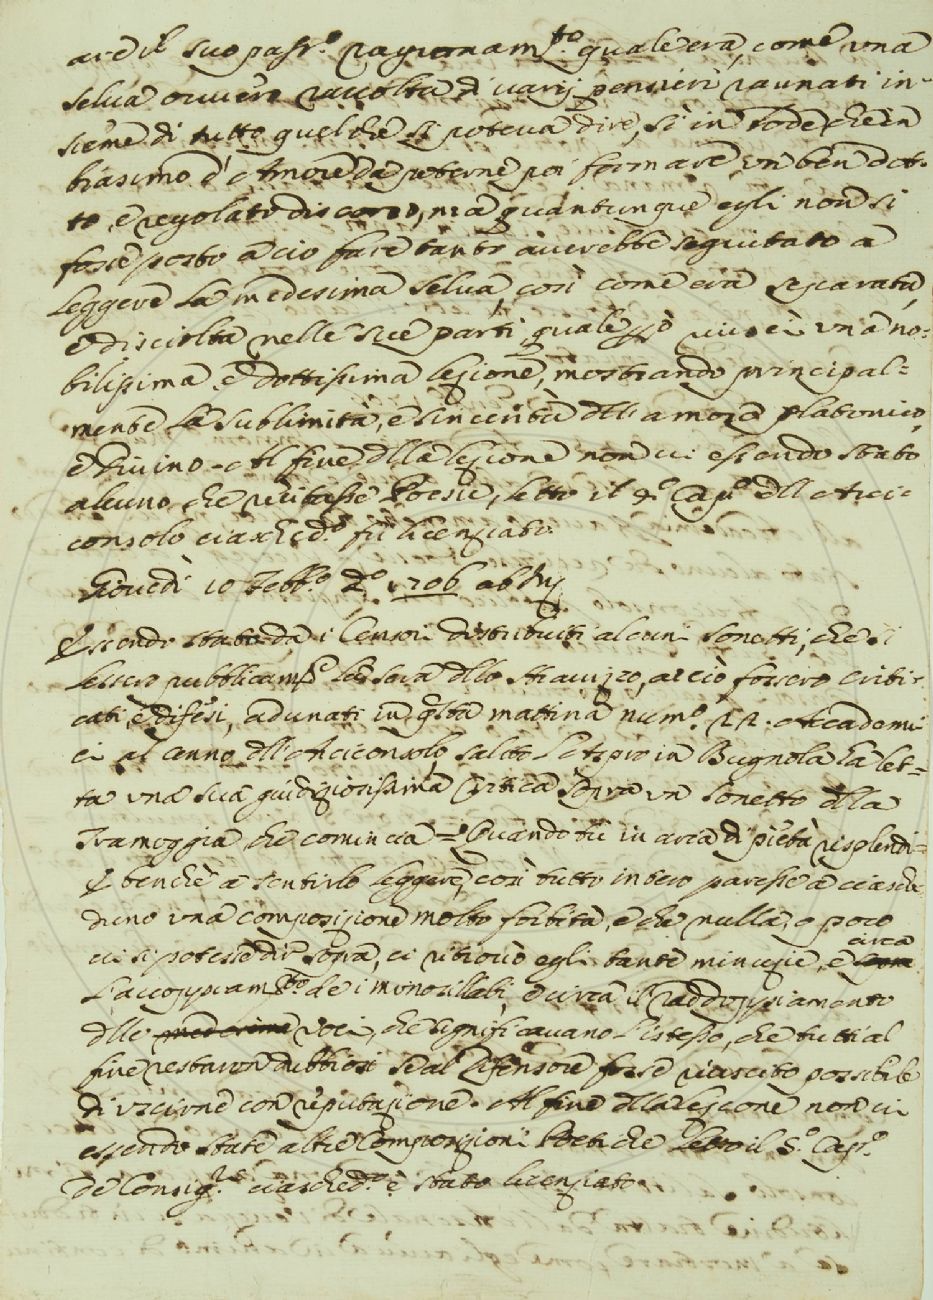 are il suo pass.º ragionam.to quale era, come una
selva ovvero raccolta di varij pensieri raunati in-
sieme di tutto quel che si poteva dire, sì in lode che in
biasimo d'Amore da poterne poi formare un ben dot-
to, e regolato discorso, ma quantunque egli non si
fosse posto a ciò fare tanto averebbe seguitato a
leggere la medesima selva, così come era separata,
e disciolta nelle sue parti, quale però riuscì una no-
bilissima, e dottissima lezione, mostrando principal-
mente la sublimità, e sincerità dell'amore platonico,
e divino. Al fine della lezione non vi essendo stato
alcuno che recitasse Poesie, letto il 9.º Cap.º dell'Arci-
consolo ciasched.º fù licenziato.
Giovedì 10 Febb.º 1706 ab
Essendo stato da i Censori distribuiti alcuni sonetti, che si
lessero pubblicam.e la sera dello stravizzo, acciò fossero criti-
cati, e difesi, adunati in q.sta mattina num.º 22. Accademi-
ci al cenno dell'Arciconsolo, salito l'Aspro in Bugnola ha let-
ta una sua giudiziosissima Critica sopra un sonetto della
Tramoggia che comincia = Quando tù in arca di pietà risplendi =
E benchè a sentirlo leggere, così tutto intero paresse a ciasche-
duno una composizione molto forbita, e che nulla, o poco
vi si potesse dir sopra, vi ritrovò egli tante minuzie, e circa
l'accoppiam.to de i monosillabi e circa il raddoppiamento
delle medesime voci, che significavano l'istesso, che tutti al
fine restaron dubbiosi se al Difensore fosse riuscito possibile
di uscirne con reputazione. Al fine della lezione non vi
essendo state altre Composizioni Poetiche letto il 5.º Cap.º
de Consig.ri ciasched.º è stato licenziato.